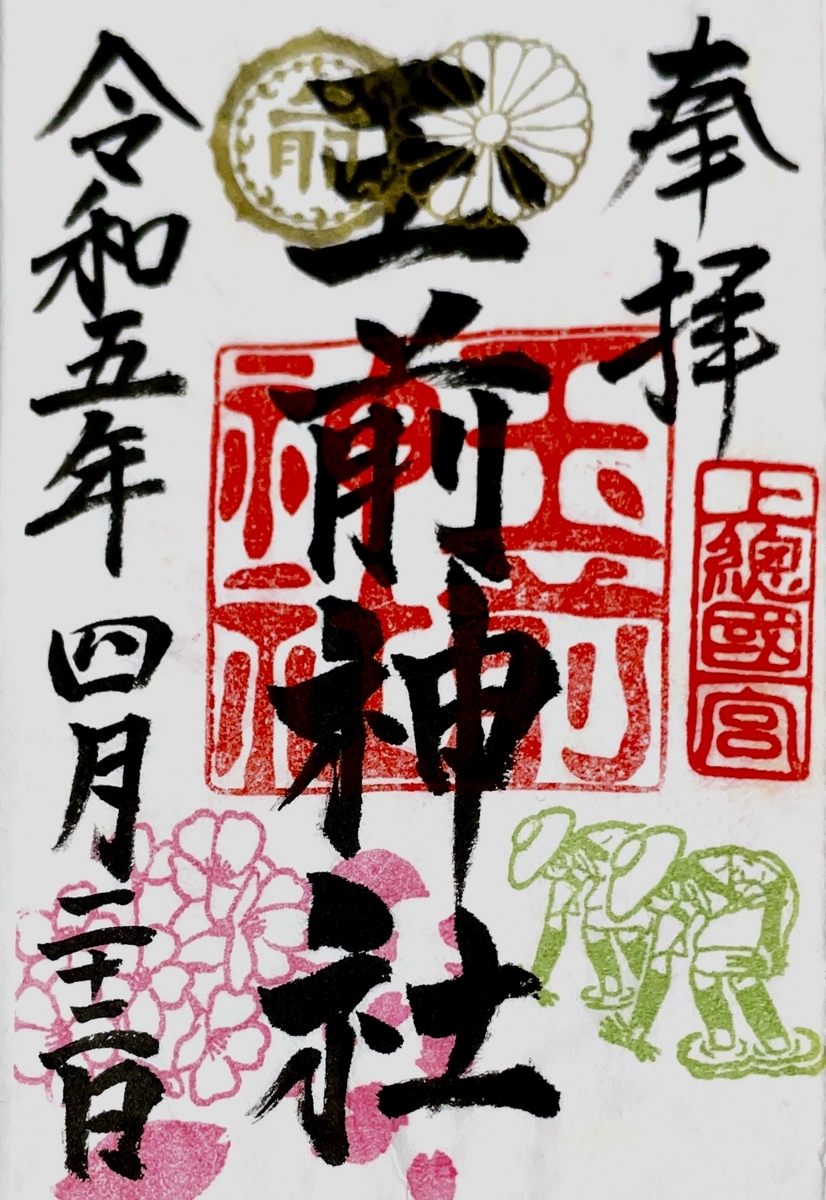 奉拝
上總國一宮
玉前神社
玉前神社
前
令和五年 四月二十二日